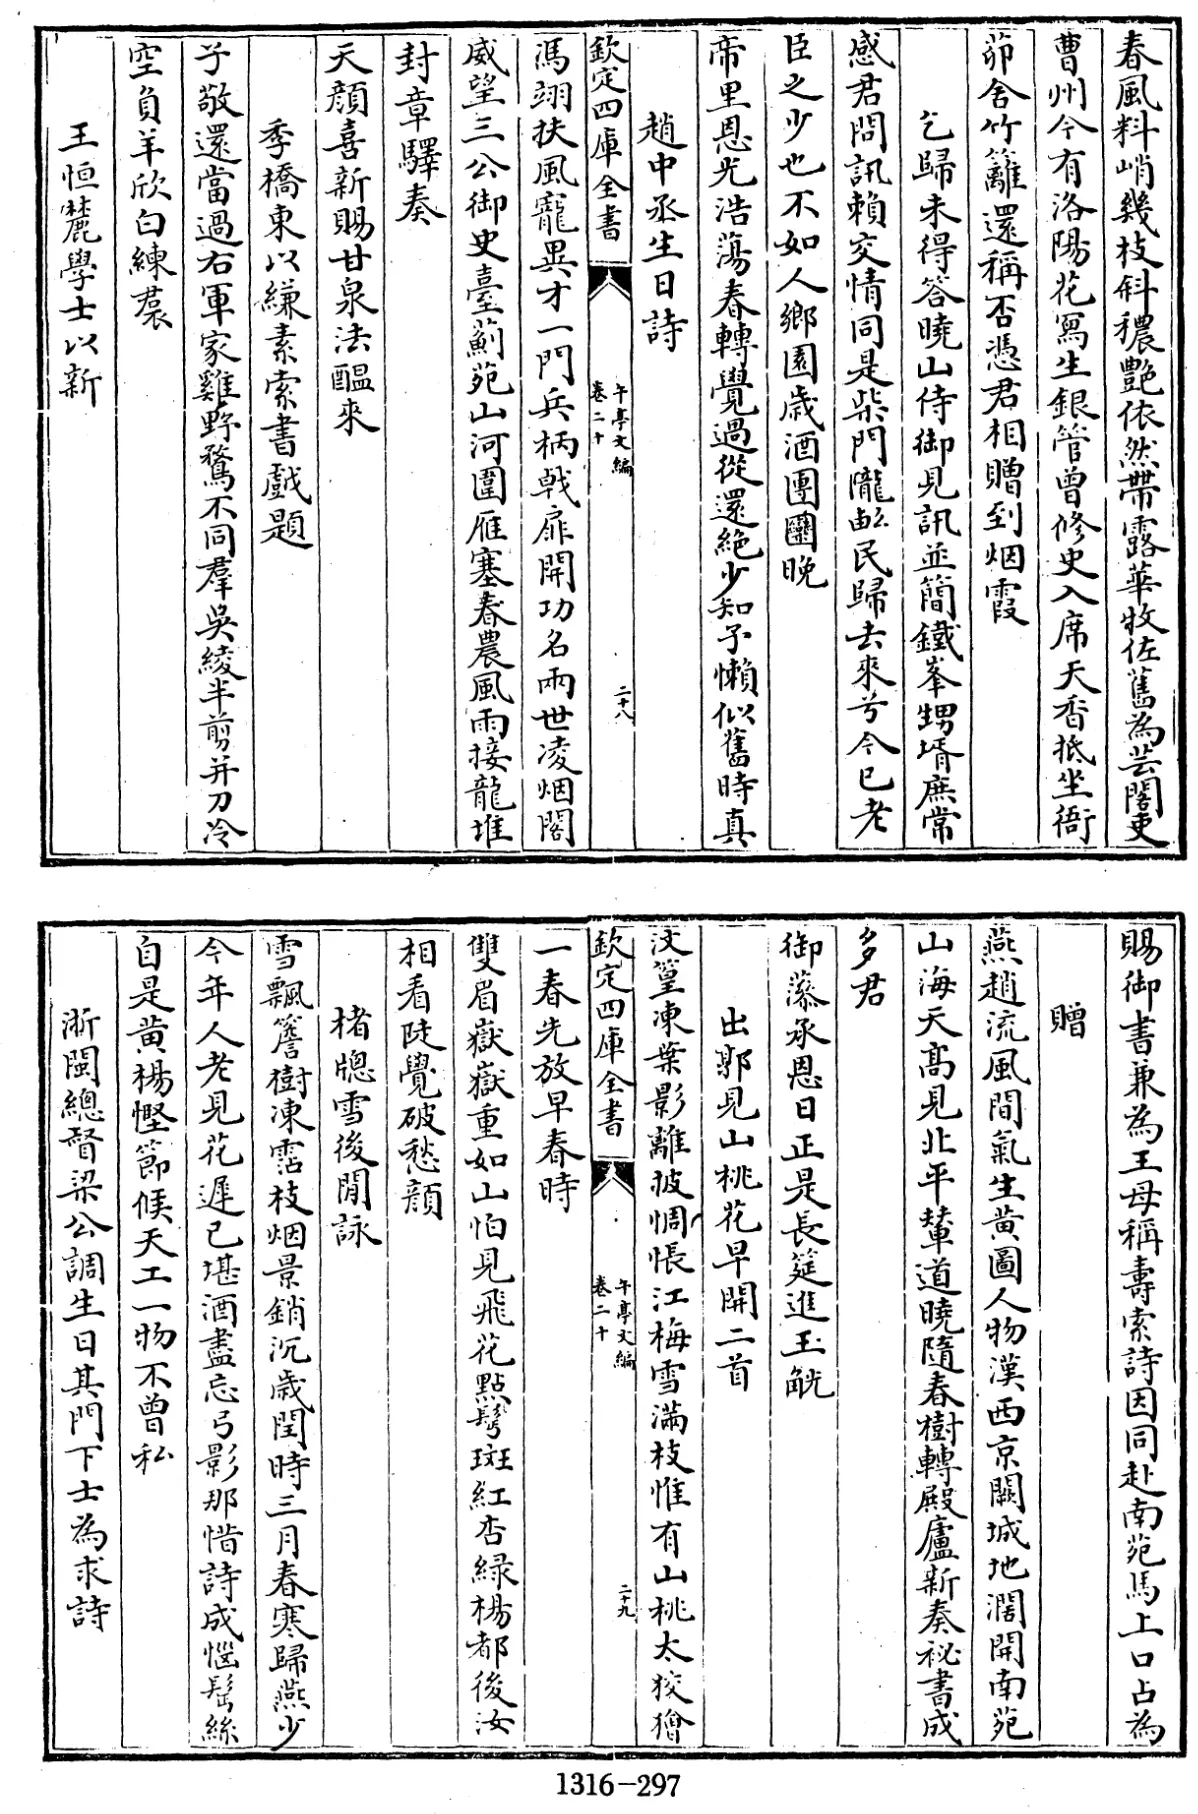 春風料峭幾枝斜穠艷依然帶露華牧佐舊為芸閣吏
曹州今有洛陽花寫生銀管曾修史入席天香抵坐衙
茆舍竹籬還稱否憑君相贈到烟霞
乞歸未得答曉山侍御見訊並簡鐵峯甥壻庶常
感君問訊賴交情同是柴門隴畝民歸去來兮今已老
臣之少也不如人鄉園歲酒團圞晚
帝里恩光浩蕩春轉覺過從還絶少知予懶似舊時真
趙中丞生日詩
欽定四庫全書
午亭文編
卷二十
二十八
馮翊扶風寵異才一門兵柄戟扉開功名兩世凌烟閣
威望三公御史臺薊苑山河圍雁塞春農風雨接龍堆
封章驛奏
天顔喜新賜甘泉法醖來
季橋東以縑素索書戲題
子敬還當過右軍家雞野鶩不同羣吳綾半剪并刀冷
空負羊欣白練裠
王恒麓學士以新
賜御書兼為王母稱壽索詩因同赴南苑馬上口占為
贈
燕趙流風間氣生黄圖人物漢西京闕城地濶開南苑
山海天高見北平輦道曉隨春樹轉殿廬新奏祕書成
多君
御藻承恩日正是長筵進玉觥
出郭見山桃花早開二首
汶篁凍葉影離披惆悵江梅雪滿枝惟有山桃太狡獪
欽定四庫全書
午亭文編
卷二十
二十九
一春先放早春時
雙眉嶽嶽重如山怕見飛花點鬂斑紅杏緑楊都後汝
相看陡覺破愁顔
楮牕雪後閒詠
雪飄簷樹凍霑枝烟景銷沉歲閏時三月春寒歸燕少
今年人老見花遲已堪酒盡忘弓影那惜詩成惱髩絲
自是黄楊慳節候天工一物不曾私
浙閩總督梁公調生日其門下士為求詩
1316-297